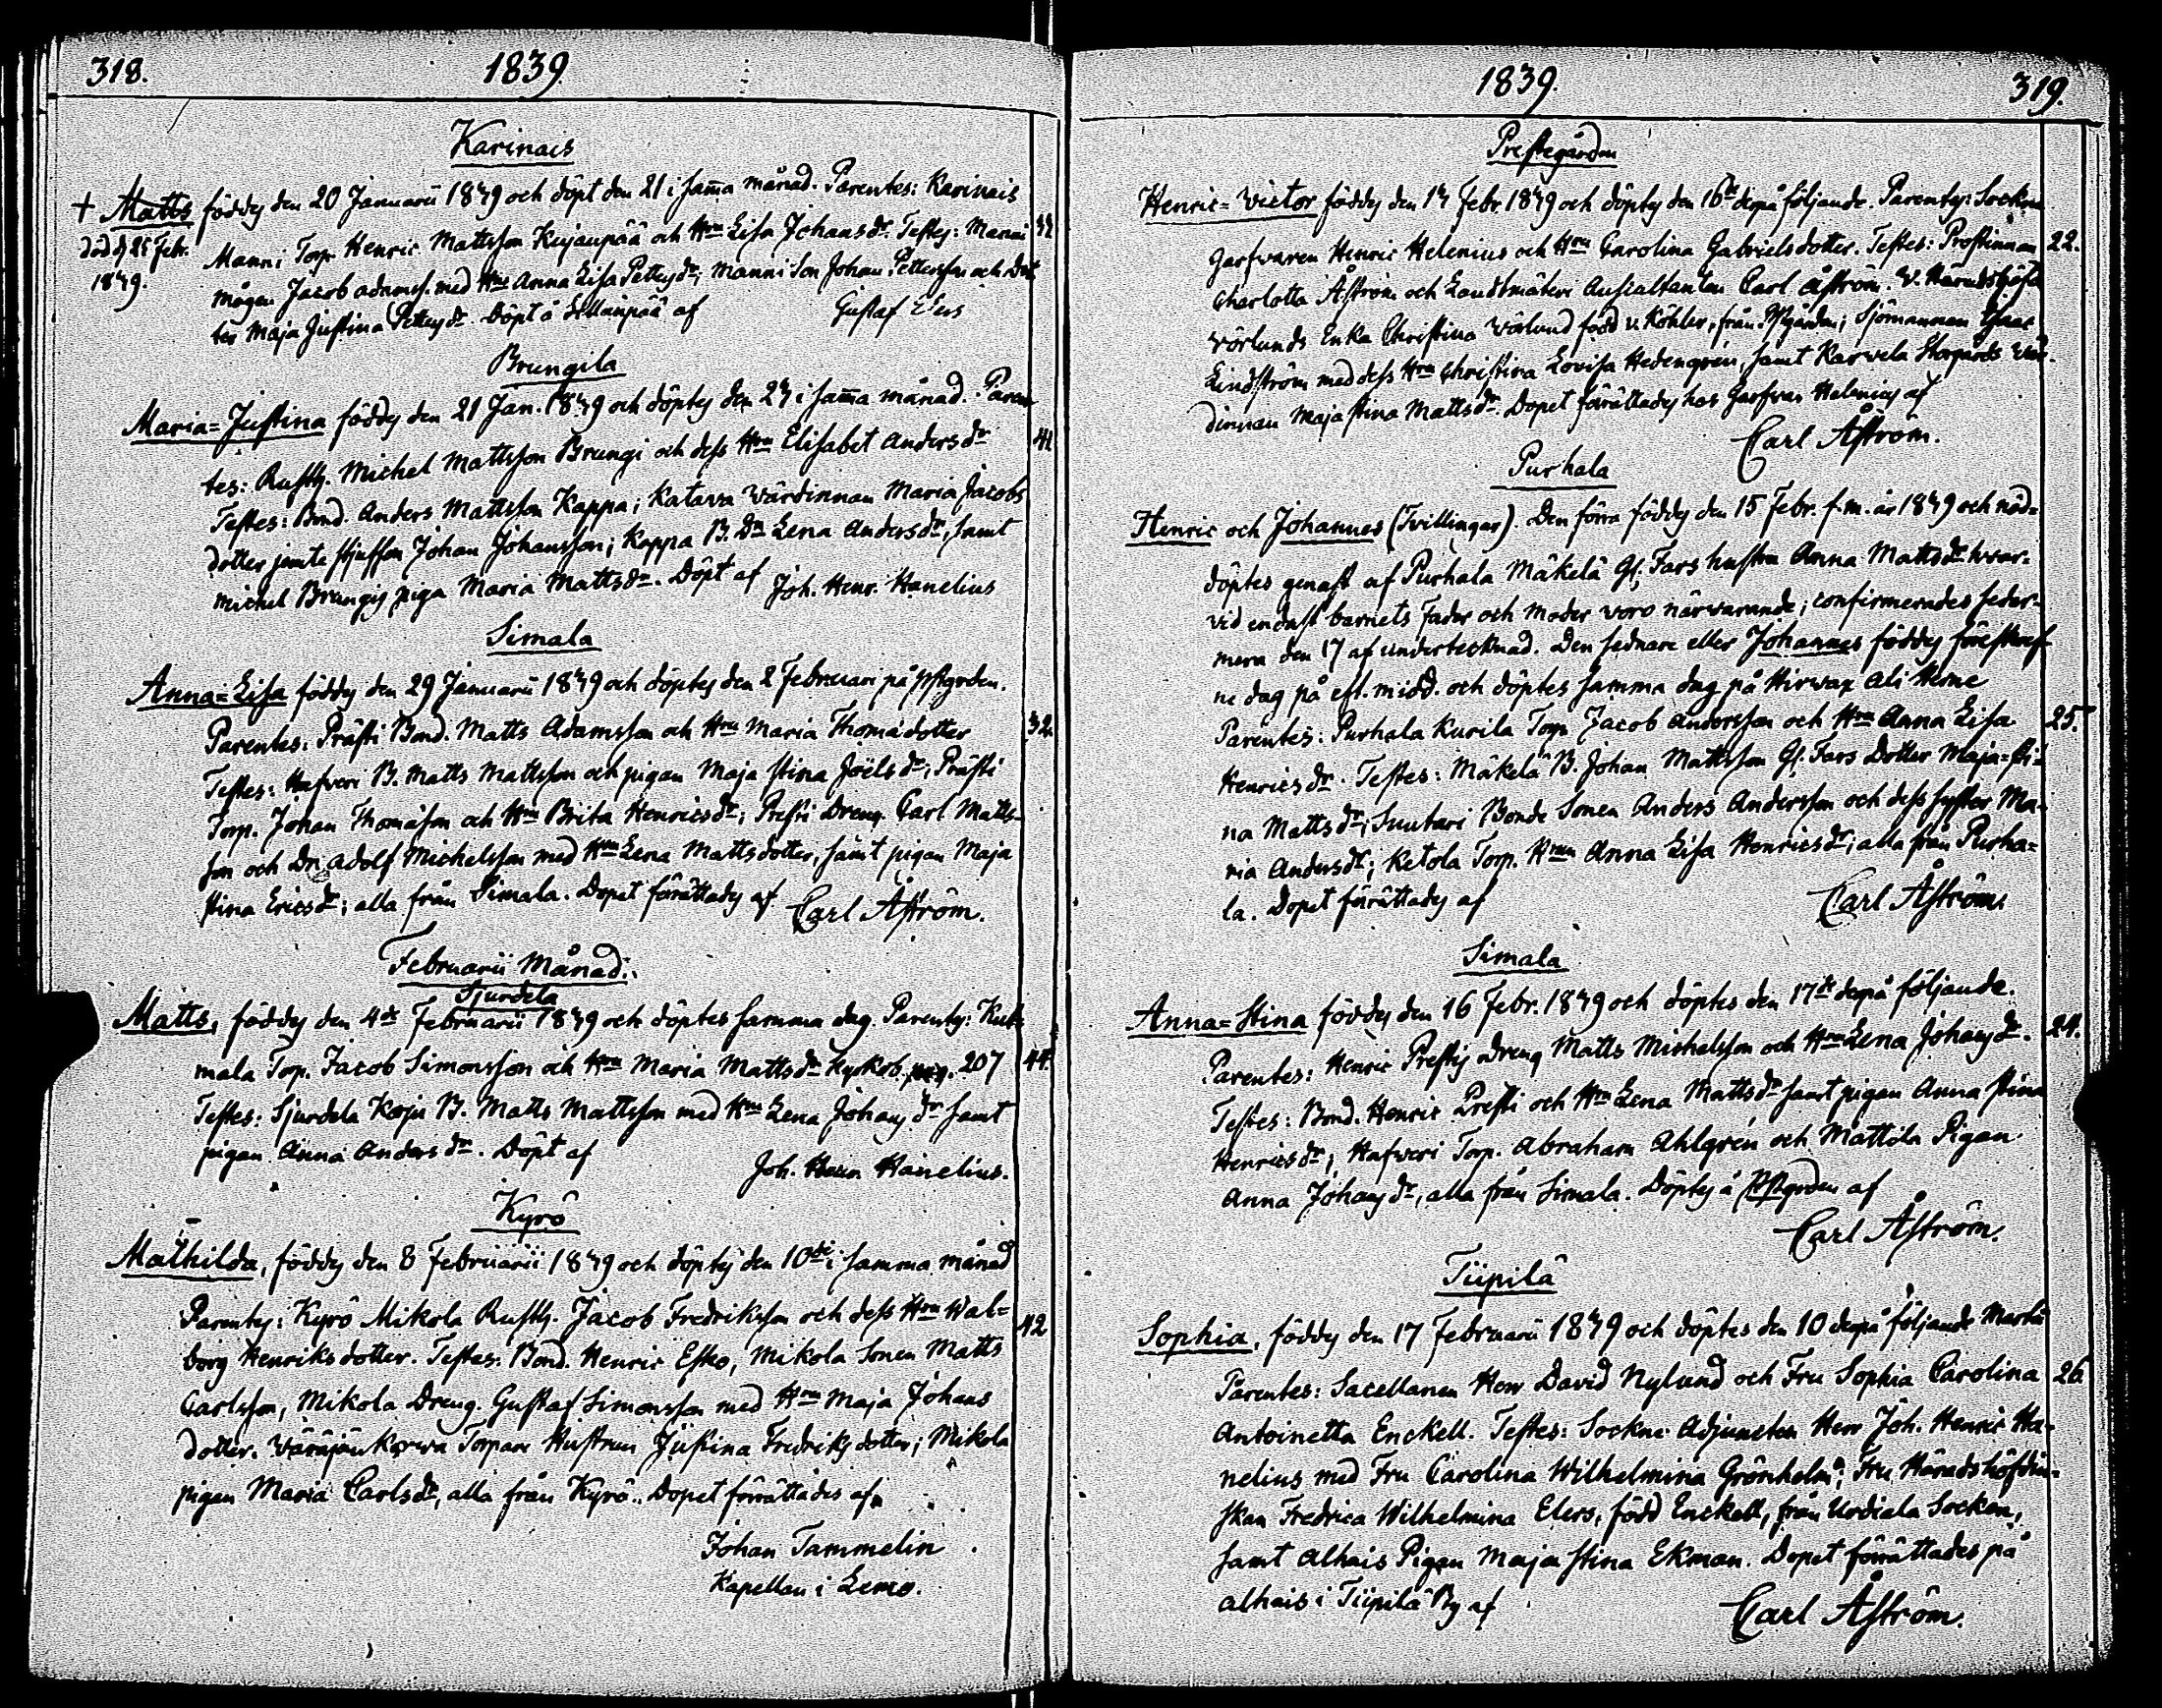 318.
1839
Karinais
+ Matts föddes den 20 Januarii 1839 och döpt den 21 i samma månad. Parentes: Karinais
död d 25 Febr. 1839.
Manni Torp. Henric Mattsson Kujanpää och Hru Lisa Johans dr. Testes: Manni
mågen Jacob Adamss. med Hru Anna Lisa Petters dr; Manni Son Johan Pettersson och Dot
ter Maja Justina Petters dr. Döpt å af Gustaf Elers
Brungila
Maria=Justina föddes den 21 Jan. 1839 och döptes den 24 i samma månad. Paren
tes: Rusth. Michel Mattsson Brungi och dess Hru Elisabet Anders dr
41
Testes: Bond. Anders Mattsson Kappa; Katava Värdinnan Maria Jacobs
dotter jemte Johan Johansson; Kappa B. Dr Lena Anders dr, samt
Michel Brungis piga Maria Matts dr. Döpt af Joh. Henr. Hanelius
Simala
Anna=Lisa föddes den 29 Januarii 1839 och döptes den 2 Februari på Pstgrden.
Parentes: Prästi Bond. Matts Adamsson och Hru Maria Thomädotter
32.
Testes: Hafveri B. Matts Mattsson och pigan Maja Stina Joëls dr; Prästi
Torp. Johan Thomäson och Hru Brita Henrics dr; Presti Dreng. Carl Matts-
son och Dr. Adolf Michelsson med Hru Lena Mattsdotter, samt pigan Maja
Stina Erics dr; alla från Simala. Dopet förättades af Carl Åström.
Februarii Månad.
Sjurdela
Matts, föddes den 4de Februarii 1839 och döptes samma dag. Parentes:
mala Torp. Jacob Simonsson och Hru Maria Matts dr 207
44.
Testes: Sjurdela B. Matts Mattsson med Hru Lena Johans dr samt
pigan Anna Anders dr. Döpt af Joh. Henr. Hanelius.
Kyrö
Mathilda, föddes den 8 Februarii 1839 och döptes den 10de i samma månad
Parentes: Kyrö Mikola Rusth. Jacob Fredriksson och dess Hru Wal=
42
borg Henriksdotter. Testes: Bond. Henric Esko, Mikola Sonen Matts
Carlsson, Mikola Dreng. Gustaf Simonsson med Hru Maja Johans
dotter. Torpare Hustrun Justina Fredriksdotter; Mikola
pigan Maria Carls dr, alla från Kyrö. Dopet förrättades af
Johan Tammelin
Kapellan i Lemo.
1839.
319.
Prestegården
Henric=Victor föddes den 14 Febr. 1839 och döptes den 16de derpå följande. Parentes: Socken
Garfvaren Henric Helenius och Hru Carolina Gabrielsdotter. Testes: Prostinnan
22.
Charlotta Åström och Landtmäteri Auscultanten Carl Åström. V. Häradshöfd
Wörlunds Enka Christina Wörlund född v. Köhler, från Pstgården; Sjömannen Isaac
Lindström med dess Hru Christina Lovisa Hedengrén, samt Karwela Storgårds Wär-
dinnan Maja Stina Matts dr. Dopet förättades hos Garfvar Helenius af
Carl Åström.
Purhala
Henric och Johannes (Tvillingar). Den förra föddes den 15 Febr. f.m. år 1839 och nöd=
döptes genast af Purhala Mäkelä Gl. Fars hustru Anna Matts dr hvar-
vid endast barnets Fader och Moder voro närvarande; confirmerades seder-
mera den 17 af undertecknad. Den sednare eller Johannes föddes förestnemf-
ne dag på eft. midd. och döptes samma dag på
Parentes: Purhala Kurila Torp. Jacob Andersson och Hru Anna Lisa
25.
Henrics dr. Testes: Mäkelä B. Johan Mattsson Gl. Fars Dotter Maja=Sti-
na Matts dr; Suutari Bonde Sonen Anders Andersson och dess syster Ma-
ria Anders dr; Ketola Torp. Hrun Anna Lisa Henrics dr; alla från Purha=
la. Dopet förättades af Carl Åström.
Simala
Anna=Stina föddes den 16 Febr. 1839 och döptes den 17de derpå följande.
24.
Parentes: Henric Prestis Dreng Matts Michelsson och Hru Lena Johans dr.
Testes: Bond. Henric Presti och Hru Lena Matts dr samt pigan Anna Stina
Henrics dr; Hafveri Torp. Abraham Ahlgrén och Mattila Pigan
Anna Johans dr, alla från Simala. Döptes å Pstgrden af
Carl Åström.
Tiipilä
Sophia, föddes den 17 Februarii 1839 och döptes den 10 derpå följande Martii
Parentes: Sacellanen Herr David Nylund och Fru Sophia Carolina
26.
Antoinetta Enckell. Testes: Sockne Adjuncten Herr Joh. Henric Ha-
nelius med Fru Carolina Wilhelmina Grönholm; Fru Häradshöfdin-
skan Fredrica Wilhelmina Elers, född Enckell, från Urdiala Socken,
samt Alhais Pigan Maja Stina Ekman. Dopet förrättades på
Alhais i Tiipilä By af Carl Åström.